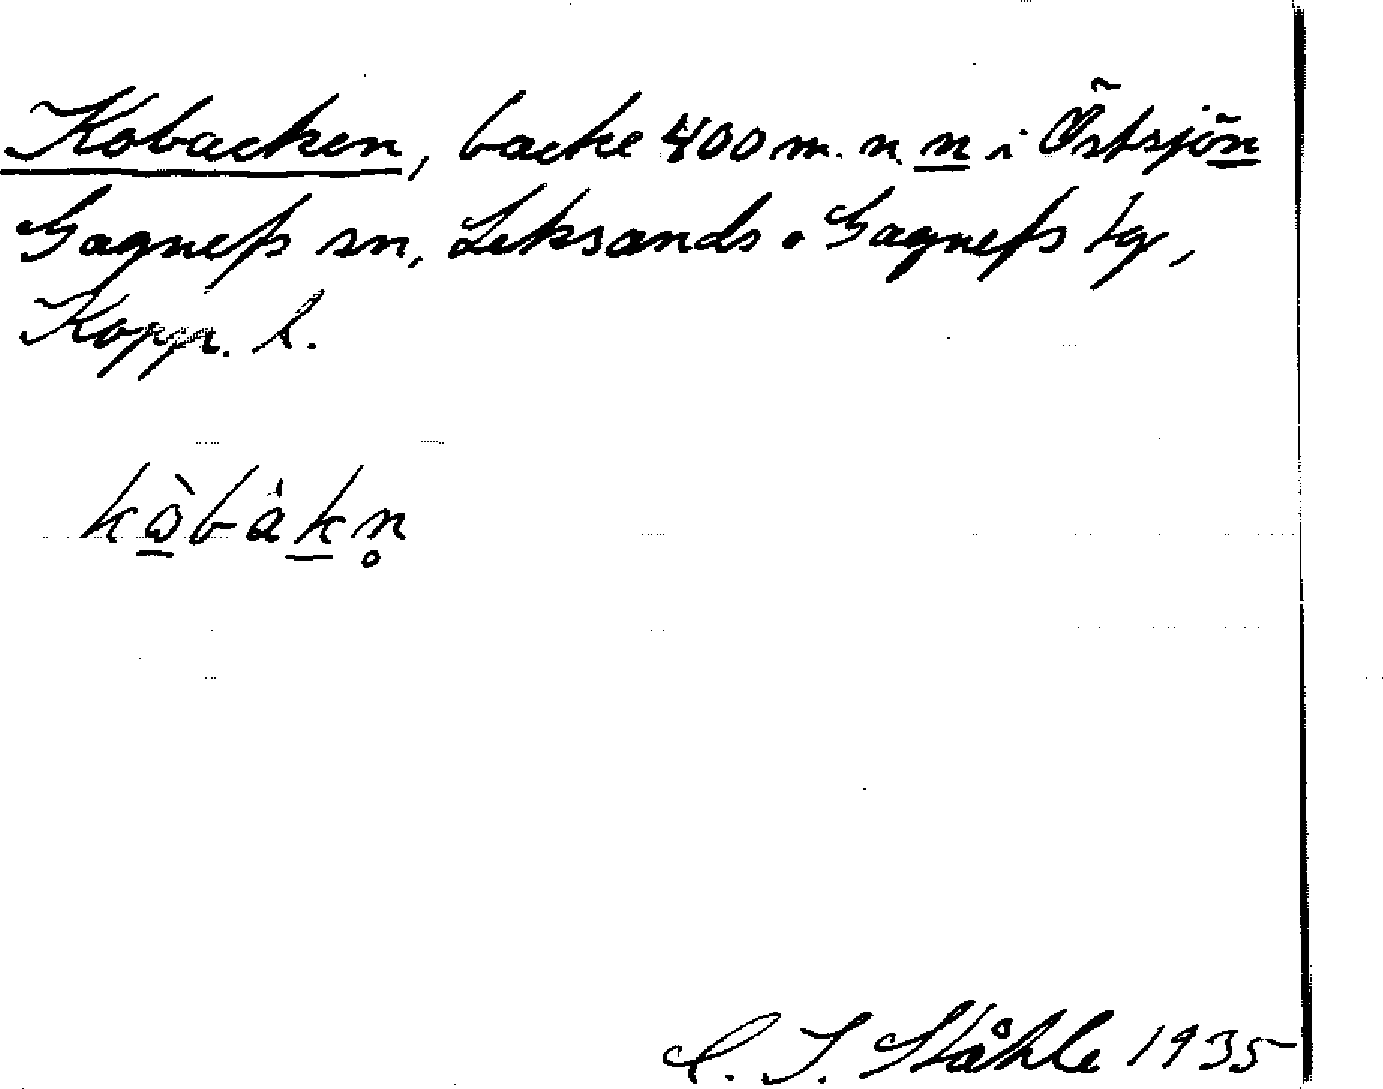 Kobacken, backe 400 m. n n i Östsjön
Gagnefs sn, Leksands o Gagnefs tg,
Kopp. l.
kòbàkn̥
C. I. Ståhle 1935